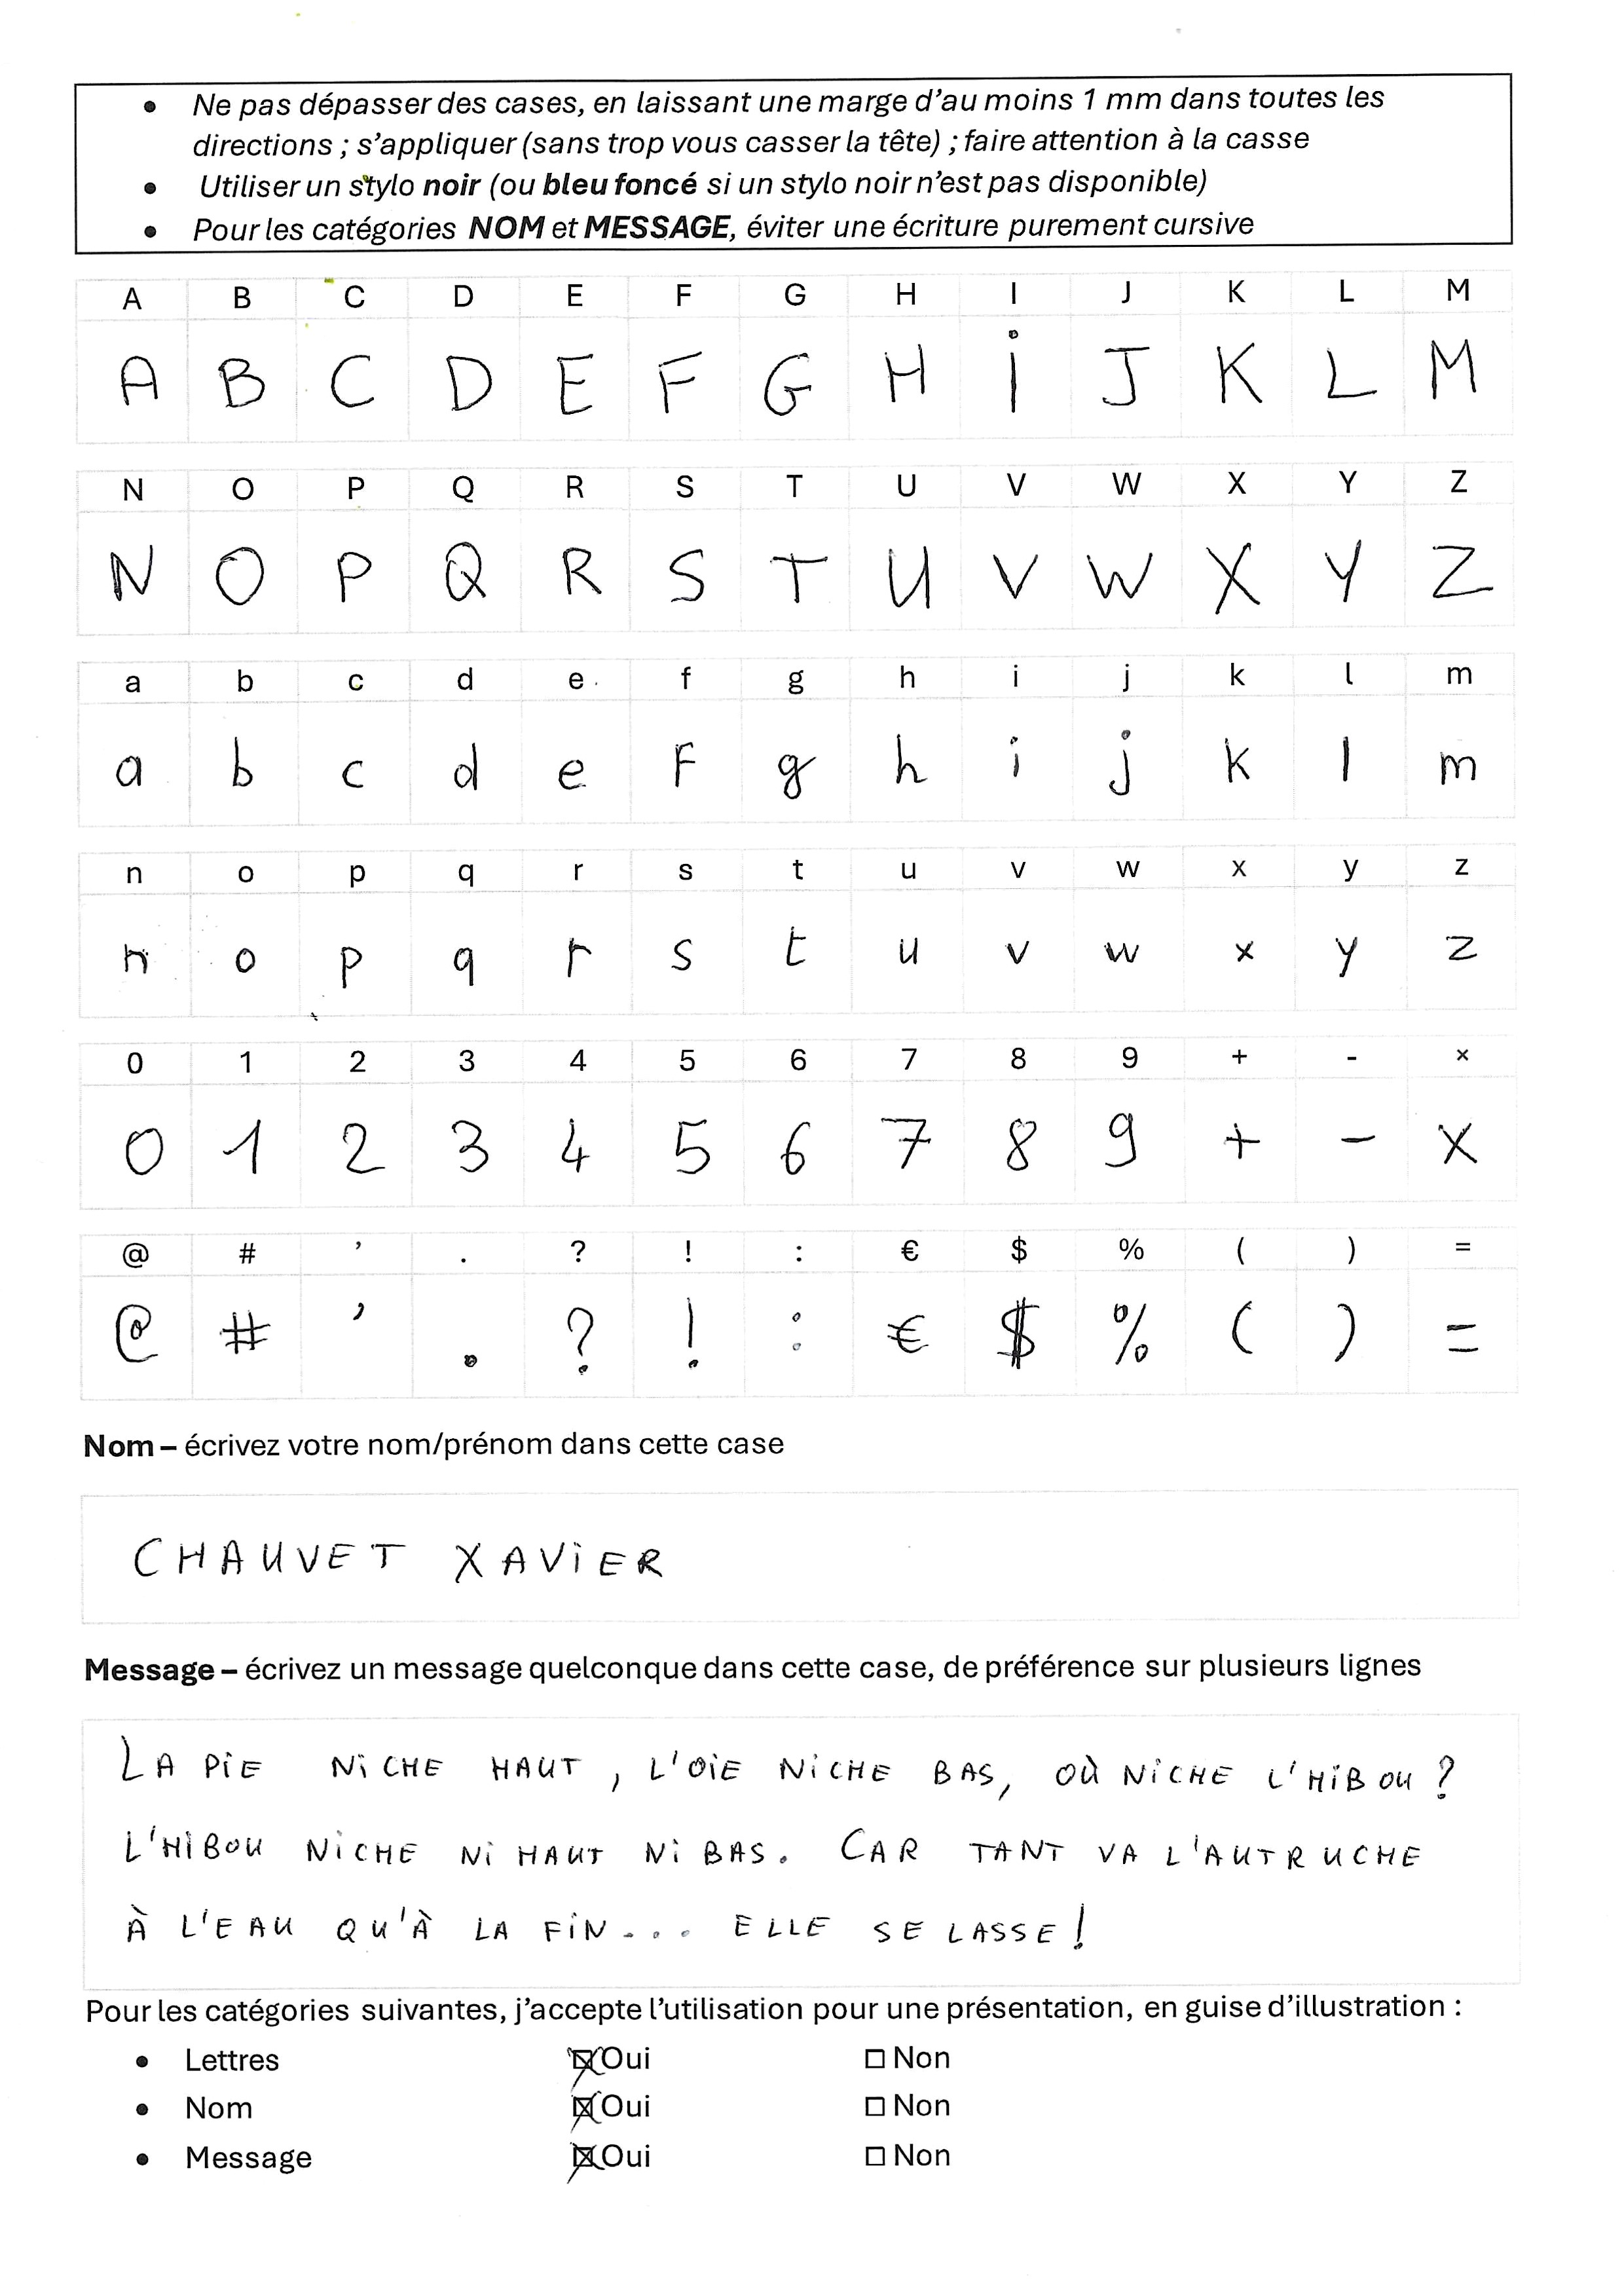 • Ne pas dépasser des cases, en laissant une marge d'au moins 1 mm dans toutes les
directions ; s'appliquer (sans trop vous casser la tête) ; faire attention à la casse
• Utiliser un stylo noir (ou bleu foncé si un stylo noir n'est pas disponible)
• Pour les catégories NOM et MESSAGE, éviter une écriture purement cursive
A B C D E F G H I J K L M
A B C D E F G H i J K L M
N O P Q R S T U V W X Y Z
N O P Q R S T U V W X Y Z
a b c d e f g h i j k l m
a b c d e F g h i j k l m
n o p q r s t u v w x y z
n o p q r s t u v w x y z
0 1 2 3 4 5 6 7 8 9 + - ×
0 1 2 3 4 5 6 7 8 9 + - ×
@ # ’ . ? ! : € $ % ( ) =
@ # ’ . ? ! : € $ % ( ) =
Nom – écrivez votre nom/prénom dans cette case
CHAUVET XAViER
Message – écrivez un message quelconque dans cette case, de préférence sur plusieurs lignes
LA PiE NiCHE HAUT, L'OiE NiCHE BAS, OÙ NiCHE L'HiBOU ?
L'HiBOU NiCHE Ni HAUT Ni BAS. CAR TANT VA L'AUTRUCHE
À L'EAU QU'À LA FiN... ELLE SE LASSE !
Pour les catégories suivantes, j'accepte l'utilisation pour une présentation, en guise d'illustration :
• Lettres ☒ Oui ☐ Non
• Nom ☒ Oui ☐ Non
• Message ☒ Oui ☐ Non